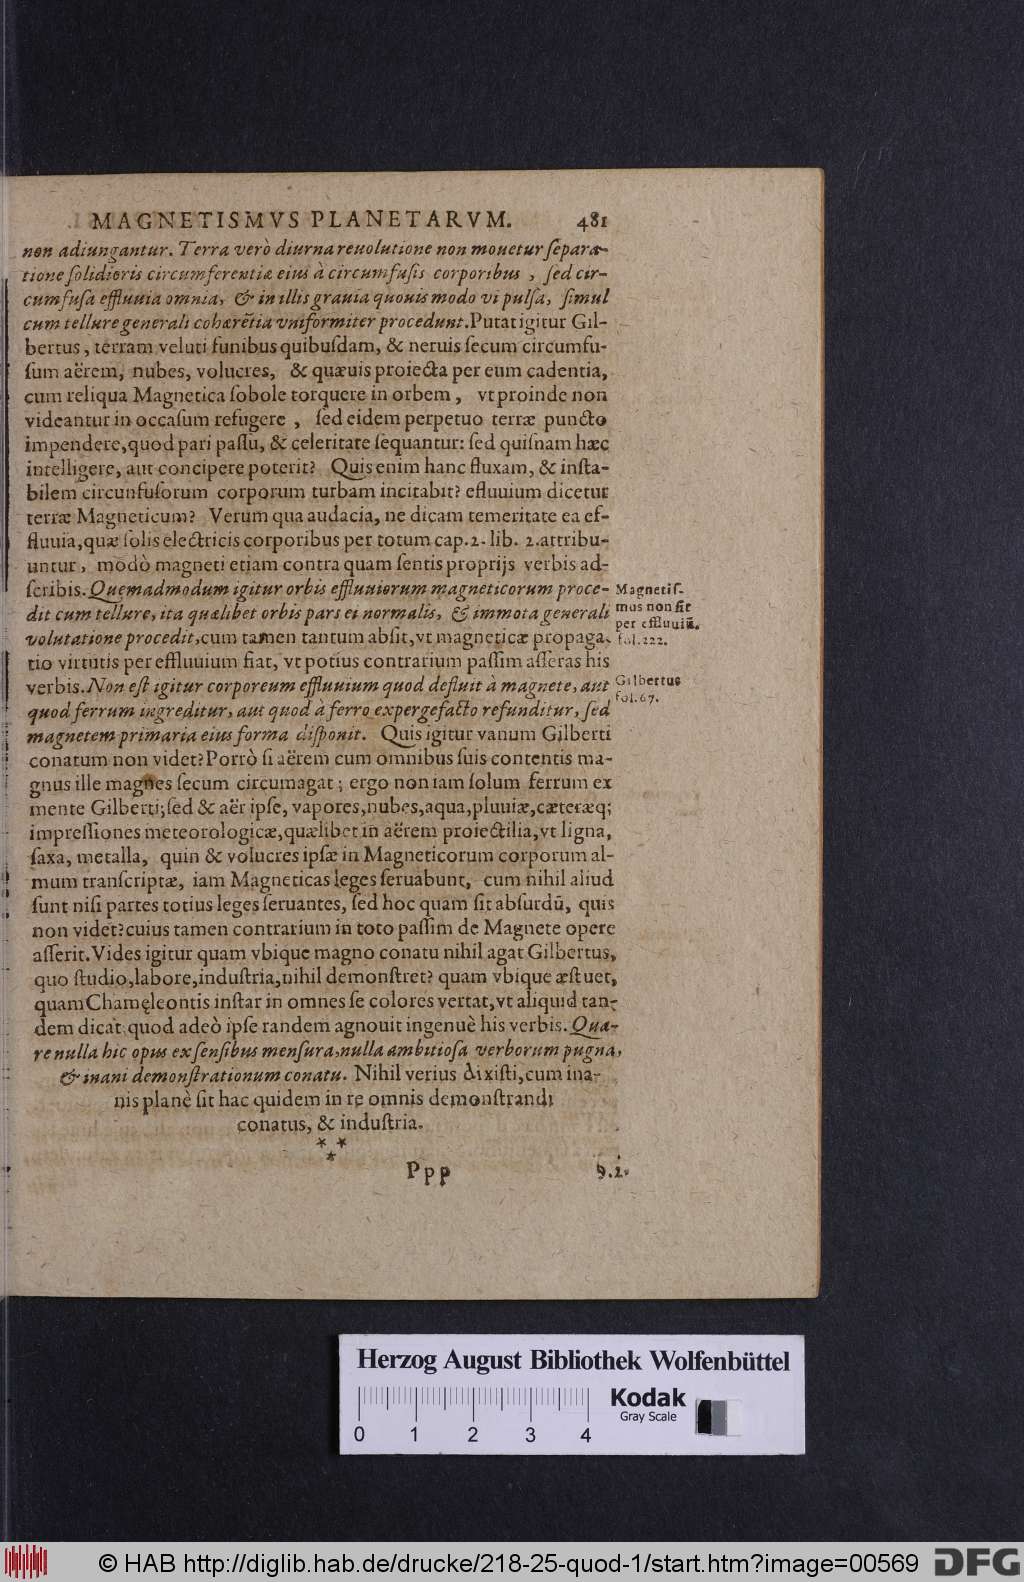 MAGNETISMVS PLANETARVM. 481
non adiungantur. Terra verò diurna reuolutione non mouetur ſepara-
tione ſolidioris circumferentiæ eius à circumfuſis corporibus, ſed cir-
cumfuſa effluuia omnia, & in illis grauia quouis modo vi pulſa, ſimul
cum tellure generali cohærẽtia vniformiter procedunt. Putat igitur Gil-
bertus, terram veluti funibus quibuſdam, & neruis ſecum circumfu-
ſum aërem, nubes, volucres, & quæuis proiecta per eum cadentia,
cum reliqua Magnetica ſobole torquere in orbem, vt proinde non
videantur in occaſum refugere, ſed eidem perpetuo terræ puncto
impendere, quod pari paſſu, & celeritate ſequantur: ſed quiſnam hæc
intelligere, aut concipere poterit? Quis enim hanc fluxam, & inſta-
bilem circunfuſorum corporum turbam incitabit? efluuium dicetur
terræ Magneticum? Verum qua audacia, ne dicam temeritate ea ef-
fluuia, quæ ſolis electricis corporibus per totum cap. 2. lib. 2. attribu-
untur, modò magneti etiam contra quam ſentis proprijs verbis ad-
ſcribis. Quemadmodum igitur orbis effluuiorum magneticorum proce-
dit cum tellure, ita quælibet orbis pars ei normalis, & immota generali
volutatione procedit, cum tamen tantum abſit, vt magneticæ propaga-
tio virtutis per effluuium fiat, vt potius contrarium paſſim aſſeras his
verbis. Non eſt igitur corporeum effluuium quod defluit à magnete, aut
quod ferrum ingreditur, aut quod à ferro expergefacto refunditur, ſed
magnetem primaria eius forma diſponit. Quis igitur vanum Gilberti
conatum non videt? Porrò ſi aërem cum omnibus ſuis contentis ma-
gnus ille magnes ſecum circumagat; ergo non iam ſolum ferrum ex
mente Gilberti; ſed & aër ipſe, vapores, nubes, aqua, pluuiæ, cæteræq;
impreſſiones meteorologicæ, quælibet in aërem proiectilia, vt ligna,
ſaxa, metalla, quin & volucres ipſæ in Magneticorum corporum al-
mum tranſcriptæ, iam Magneticas leges ſeruabunt, cum nihil aliud
ſunt niſi partes totius leges ſeruantes, ſed hoc quam ſit abſurdũ, quis
non videt? cuius tamen contrarium in toto paſſim de Magnete opere
aſſerit. Vides igitur quam vbique magno conatu nihil agat Gilbertus,
quo ſtudio, labore, induſtria, nihil demonſtret? quam vbique æſtuet,
quam Chamęleontis inſtar in omnes ſe colores vertat, vt aliquid tan-
dem dicat, quod adeò ipſe tandem agnouit ingenuè his verbis. Qua-
re nulla hic opus ex ſenſibus menſura, nulla ambitioſa verborum pugna,
& inani demonſtrationum conatu. Nihil verius dixiſti, cum ina-
nis planè ſit hac quidem in re omnis demonſtrandi
conatus, & induſtria.
* *
*
Ppp
Magnetiſ-
mus non ſit
per effluuiũ.
fol. 222.
Gilbertus
fol. 67.
Herzog August Bibliothek Wolfenbüttel
Kodak
Gray Scale
0 1 2 3 4
© HAB http://diglib.hab.de/drucke/218-25-quod-1/start.htm?image=00569
DFG